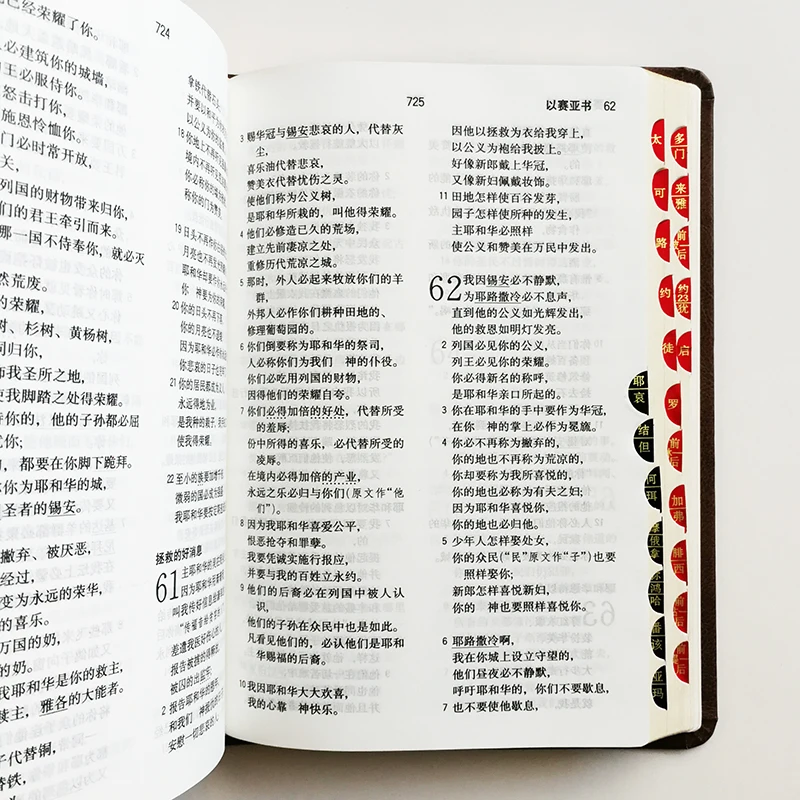 已经荣耀了你。
724
必建筑你的城墙,
王必服侍你。
怒击打你,
施恩怜恤你。
门必时常开放,
关,
列国的财物带来归你,
们的君王牵引而来。
那一国不侍奉你,就必灭
然荒废。
的荣耀,
树、杉树、黄杨树,
同归你,
饰我圣所之地,
使我脚踏之处得荣耀。
待你的,他的子孙都必屈
,都要在你脚下跪拜。
你为耶和华的城,
圣者的锡安。
撇弃、被厌恶,
经过,
变为永远的荣华,
的喜乐。
万国的奶,
的奶。
我耶和华是你的救主,
赎主,雅各的大能者。
子代替铜,
代替铁,
18 你地上不再听
19 日头不再作你
月亮也不再
20 你的日头不再下
你的月亮也不
因为耶和华必
你悲哀的日子也
21 你的居民都成为义
永远得地为业,
使我得荣耀。
22 至小的族要加增千
微弱的国必成为强
我耶和华要
拯救的好消息
61 主耶和华的
因为耶和华用膏
叫我传好信息给
差遣我医好伤心的
报告被掳的得释放,
被囚的出监牢;
2 报告耶和华的恩年,
和我们 神报仇的日子,
安慰一切悲哀的人,
725
以赛亚书 62
3 赐华冠与锡安悲哀的人,代替灰
尘,
喜乐油代替悲哀,
赞美衣代替忧伤之灵。
使他们称为公义树,
是耶和华所栽的,叫他得荣耀。
4 他们必修造已久的荒场,
建立先前凄凉之处,
重修历代荒凉之城。
5 那时,外人必起来牧放你们的羊
群,
外邦人必作你们耕种田地的、
修理葡萄园的。
6 你们倒要称为耶和华的祭司,
人必称你们为我们 神的仆役。
你们必吃用列国的财物,
因得他们的荣耀自夸。
7 你们必得加倍的好处,代替所受
的羞辱;
份中所得的喜乐,必代替所受的
凌辱。
在境内必得加倍的产业,
永远之乐必归与你们(原文作“他
们”)。
8 因为我耶和华喜爱公平,
恨恶抢夺和罪孽。
我要凭诚实施行报应,
并要与我的百姓立永约。
9 他们的后裔必在列国中被人认
识,
他们的子孙在众民中也是如此。
凡看见他们的,必认他们是耶和
华赐福的后裔。
10 我因耶和华大大欢喜,
我的心靠 神快乐。
因他以拯救为衣给我穿上,
以公义为袍给我披上。
好像新郎戴上华冠,
又像新妇佩戴妆饰。
11 田地怎样使百谷发芽,
园子怎样使所种的发生,
主耶和华必照样
使公义和赞美在万民中发出。
62 我因锡安必不静默,
为耶路撒冷必不息声,
直到他的公义如光辉发出,
他的救恩如明灯发亮。
2 列国必见你的公义,
列王必见你的荣耀。
你必得新名的称呼,
是耶和华亲口所起的。
3 你在耶和华的手中要作为华冠,
在你 神的掌上必作为冕旒。
4 你必不再称为撇弃的,
你的地也不再称为荒凉的,
你却要称为我所喜悦的,
你的地也必称为有夫之妇;
因为耶和华喜悦你,
你的地也必归他。
5 少年人怎样娶处女,
你的众民(“民”原文作“子”)也要
照样娶你;
新郎怎样喜悦新妇,
你的 神也要照样喜悦你。
6 耶路撒冷啊,
我在你城上设立守望的,
他们昼夜必不静默,
呼吁耶和华的,你们不要歇息,
7 也不要使他歇息,
太
可
路
约
徒
罗
前后
加弗
腓西
前后
前后
多门
来雅
前后
约123犹
启
耶哀
结但
何珥
摩俄拿
弥鸿哈
番该
亚玛